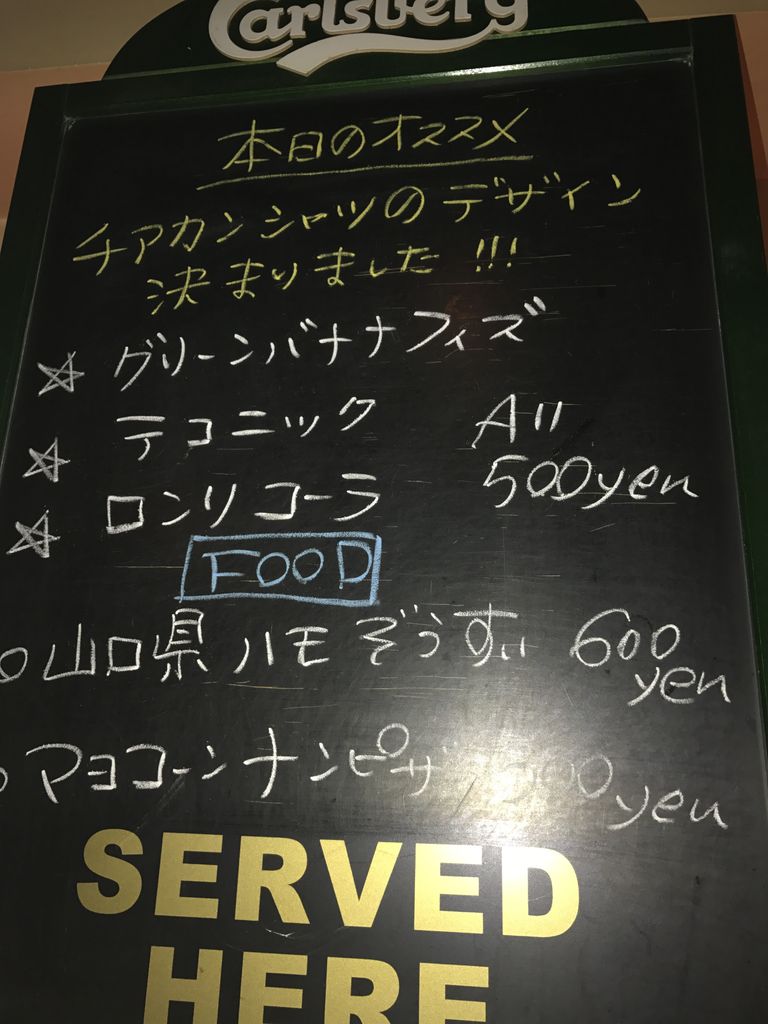 Carlsberg
本日のオススメ
チアカンシャツのデザイン
決まりました!!!
☆ グリーンバナナフィズ
☆ テコニック
All
500yen
☆ ロンリコーラ
FOOD
○山口県 ハモ ぞうすい 600
yen
○マヨコーンナンピザ
yen
SERVED
HERE